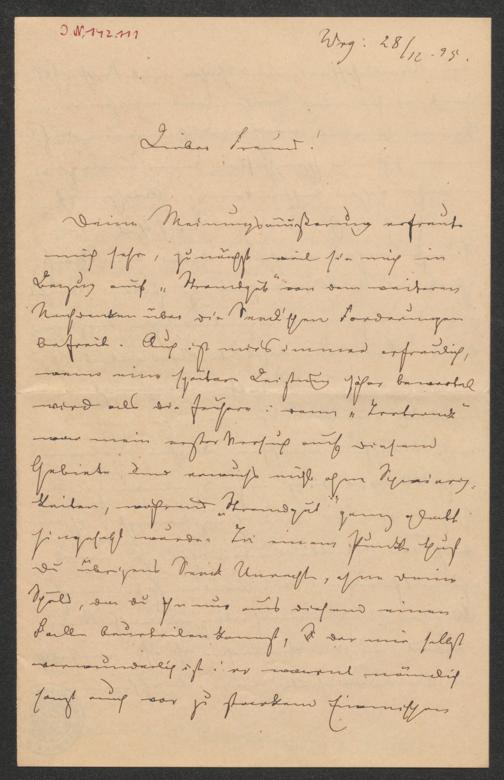 I.N. 142.111
Wrg: 28/12. 95.
Lieber Freund!
Deine Meinungsäußerung erfreute
mich sehr, zunächst weil sie mich in
Bezug auf „Strandgut" von dem weiteren
Nachdenken über die Seeck'schen Forderungen
befreit. Auch ist mirs immer erfreulich,
wenn eine spätere Leistung höher bewertet
wird als die frühere: denn
war mein erster Versuch auf diesem
Gebiete und erwuchs nicht ohne Schwierig-
keiten, während „Strandgut" ganz glatt
hingesetzt wurde. In einem Punkte thust
du übrigens Seeck Unrecht, ohne deine
Schuld, da du ihn nur aus diesem einen
Falle beurteilen kannst, der mir selbst
verwunderlich ist: er warnt nämlich
sonst auch vor zu starkem Einmischen